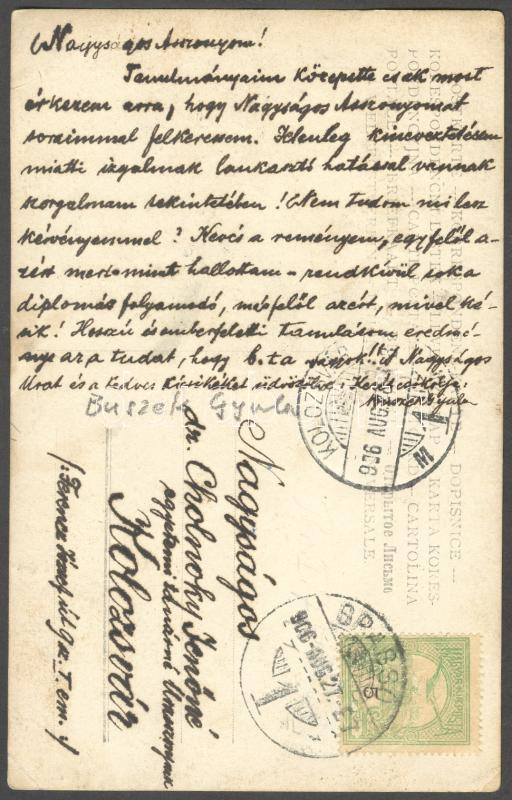 Nagyságos Asszonyom!
Tanulmányaim közepette csak most
érkezem arra, hogy Nagyságos Asszonyomat
soraimmal felkeressem. Jelenleg kineveztetésem
miatti izgalmak lankasztó hatással vannak
szorgalmam tekintetében! Nem tudom mi lesz
kérvényemmel? Nincs a reményem, egyfelől a-
zért mert - mint hallottam - rendkívül sok a
diplomás folyamodó, másfelől azért, mivel ké-
sik! Hosszú és emberfeletti tanulásom eredmé-
nye az a tudat, hogy b. t. a vagyok!!! A Nagyságos
Urat és a kedves üdvözölve: Kezeit csókolja:
Buszek Gyula
Buszek Gyula
Nagyságos
dr. Cholnoky Jenőné
egyetemi tanárné Úrasszonynak
Kolozsvár
/: Ferencz József út 9 sz. I em. :/
KOLOZS
906 AUG.
M
BPEST
906 AUG. 27
5
DOPISNICE
KARTA KORES-
CARTOLINA
Открытое Письмо